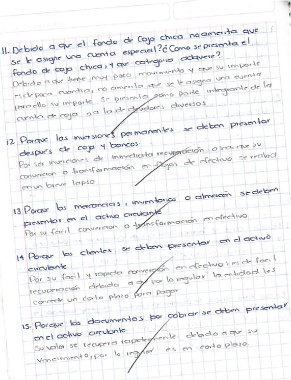 11. Debido a que el fondo de Caja chica no amerita que
se le asigne una cuenta especial? ¿Como se presenta el
fondo de caja chica, y que categoria adquiere?
Debido a que tiene muy poco movimiento y que su importe
es de poca cuantia, no amerita que se le asigne una cuenta
para ello su importe. Se presenta como parte integrante de la
cuenta de caja o a la de deudores diversos.
12. Porque las inversiones permanentes se deben presentar
despues de caja y bancos:
Por ser inversiones de inmediata recuperación o sea que su
conversion o transformación en de efectivo se realiza
en un breve lapso
13 Porque las mercancias, inventarios o almacén se deben
presentar en el activo circulante
Por su facil conversion o transformación en efectivo
14 Porque los clientes se deben presentar en el activo
circulante
Por su facil y rapida conversion en efectivo es de facil
recuperación debido a que por lo regular la entidad les
concede un corto plazo para pagar
15. Porque los documentos por cobrar se deben presentar
en el activo circulante
Su valor se recupera rapidamente debido a que su
vencimiento, por lo regular es en corto plazo.